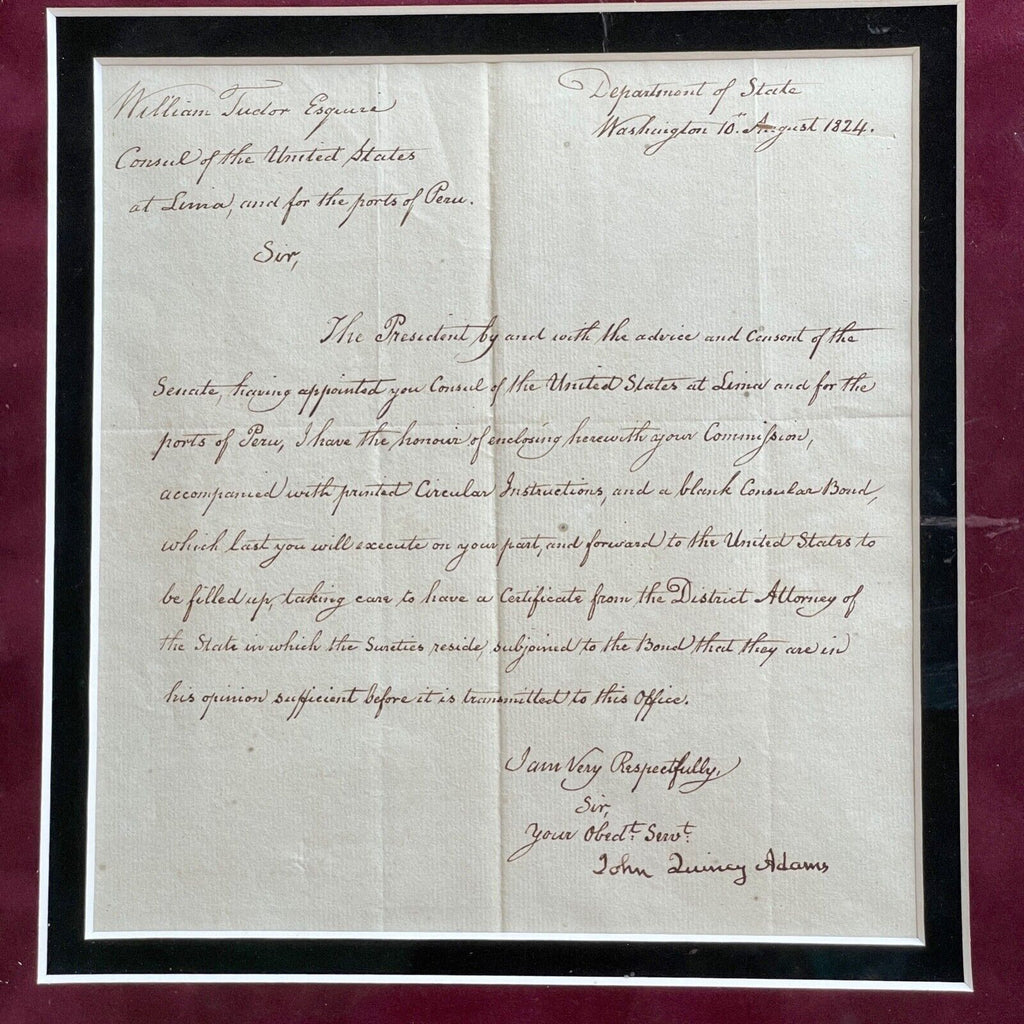 William Tudor Esquire
Consul of the United States
at Lima, and for the ports of Peru.
Department of State
Washington 10th August 1824.
Sir,
The President by and with the advice and Consent of the
Senate, having appointed you Consul of the United States at Lima and for the
ports of Peru, I have the honour of enclosing herewith your Commission,
accompanied with printed Circular Instructions, and a blank Consular Bond,
which last you will execute on your part, and forward to the United States to
be filled up, taking care to have a Certificate from the District Attorney of
the State in which the Sureties reside, subjoined to the Bond that they are in
his opinion sufficient before it is transmitted to this Office.
I am Very Respectfully,
Sir,
Your Obedt. Servt.
John Quincy Adams